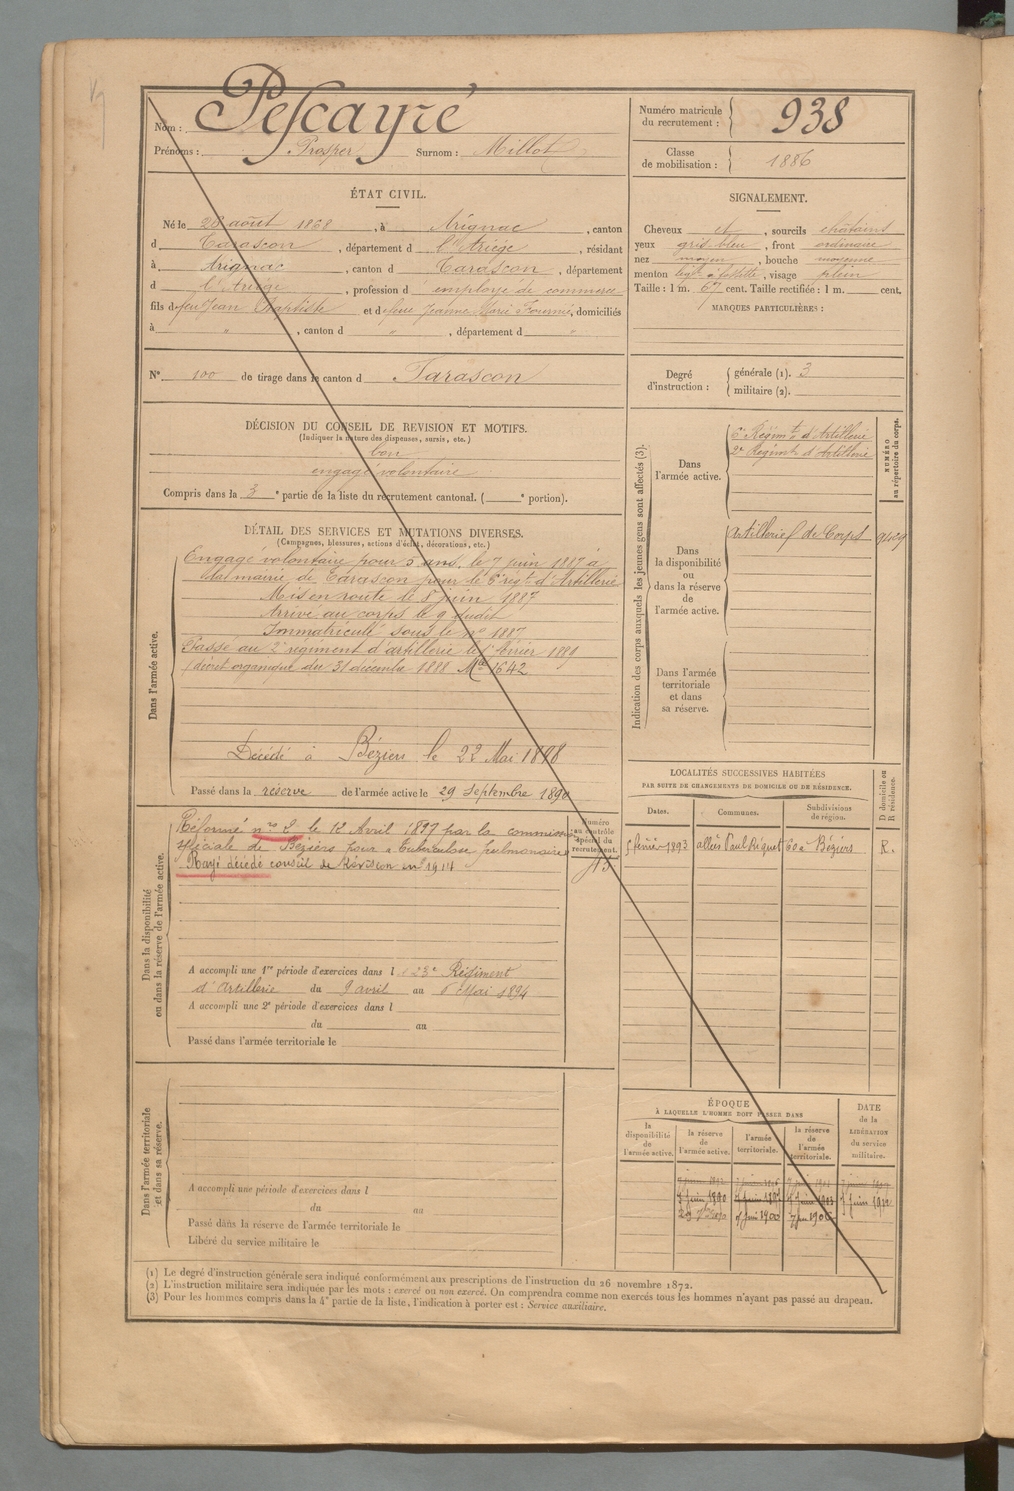 Nom : Pescayré
Prénoms : Prosper Surnom : Millot
Numéro matricule du recrutement : 938
Classe de mobilisation : 1886
ÉTAT CIVIL.
Né le 20 août 1868, à Arignac, canton
d Tarascon, département d l'Ariége, résidant
à Arignac, canton d Tarascon, département
d l'Ariége, profession d employé de commerce
fils d feu Jean Baptiste et d feue Jeanne Marie Fournié, domiciliés
à " , canton d " , département d "
N° 100 de tirage dans le canton d Tarascon
SIGNALEMENT.
Cheveux et , sourcils châtains
yeux gris bleu , front ordinaire
nez moyen , bouche moyenne
menton à fossette , visage plein
Taille : 1 m. 67 cent. Taille rectifiée : 1 m. cent.
MARQUES PARTICULIÈRES :
Degré d'instruction : générale (1). 3
militaire (2).
DÉCISION DU CONSEIL DE REVISION ET MOTIFS.
(Indiquer la nature des dispenses, sursis, etc.)
bon
engagé volontaire
Compris dans la 3e partie de la liste du recrutement cantonal. ( e portion).
DÉTAIL DES SERVICES ET MUTATIONS DIVERSES.
(Campagnes, blessures, actions d'éclat, décorations, etc.)
Dans l'armée active.
Engagé volontaire pour 5 ans, le 7 juin 1887 à
la mairie de Tarascon pour le 6e régt d'Artillerie
Mis en route le 8 juin 1887
Arrivé au corps le 9 dudit
Immatriculé sous le n° 1887
Passé au 2e régiment d'artillerie le 1er février 1889
(décret organique du 31 décembre 1888 Mle 1642
Décédé à Béziers le 22 Mai 1898
Passé dans la réserve de l'armée active le 29 Septembre 1890
Indication des corps auxquels les jeunes gens sont affectés (3).
NUMÉRO au répertoire du corps.
Dans l'armée active.
6e Régimt d'Artillerie
2e Régimt d'Artillerie
Dans la disponibilité ou dans la réserve de l'armée active.
Artillerie de Corps
Dans l'armée territoriale et dans sa réserve.
LOCALITÉS SUCCESSIVES HABITÉES
PAR SUITE DE CHANGEMENTS DE DOMICILE OU DE RÉSIDENCE.
D domicile ou R résidence.
Dates. Communes. Subdivisions de région.
5 févier 1893 allée Paul Riquet 60 Béziers R.
Dans la disponibilité ou dans la réserve de l'armée active.
Numéro au contrôle spécial du recrutement.
Réformé n° 2 le 12 Avril 1897 par la commission
spéciale de Béziers pour "Tuberculose pulmonaire"
Rayé décédé conseil de Révision en 1914
A accompli une 1re période d'exercices dans l 23e Régiment
d'Artillerie du 9 avril au 6 Mai 1894
A accompli une 2e période d'exercices dans l
du au
Passé dans l'armée territoriale le
Dans l'armée territoriale et dans sa réserve.
A accompli une période d'exercices dans l
du au
Passé dans la réserve de l'armée territoriale le
Libéré du service militaire le
ÉPOQUE
À LAQUELLE L'HOMME DOIT PASSER DANS
la disponibilité de l'armée active.
la réserve de l'armée active.
l'armée territoriale.
la réserve de l'armée territoriale.
DATE de la LIBÉRATION du service militaire.
7 juin 1900 7 juin 1906 7 juin 1912
(1) Le degré d'instruction générale sera indiqué conformément aux prescriptions de l'instruction du 26 novembre 1872.
(2) L'instruction militaire sera indiquée par les mots : exercé ou non exercé. On comprendra comme non exercés tous les hommes n'ayant pas passé au drapeau.
(3) Pour les hommes compris dans la 4e partie de la liste, l'indication à porter est : Service auxiliaire.